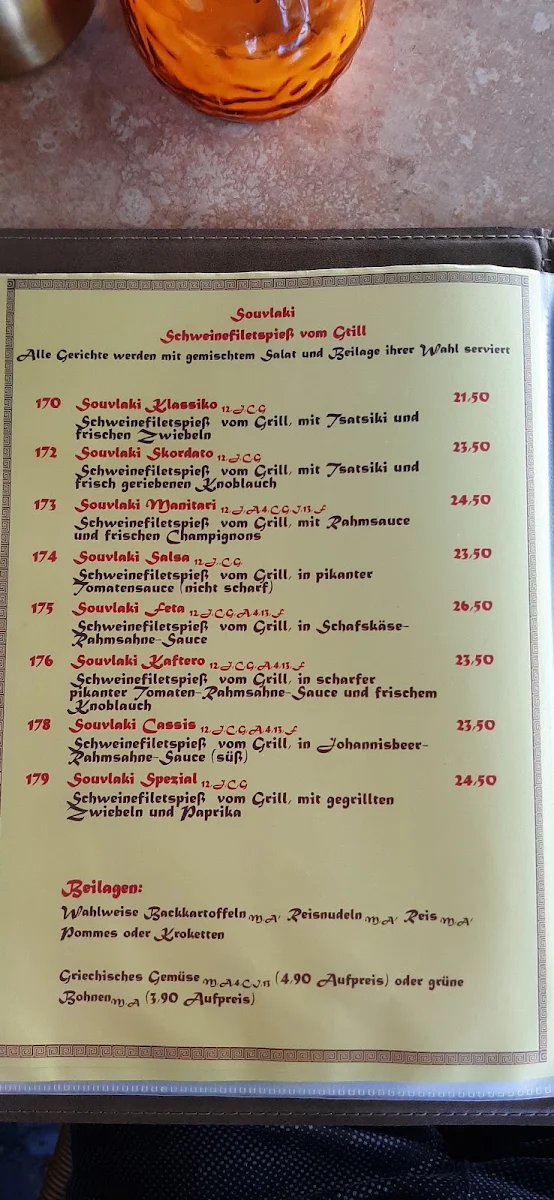 Souvlaki
Schweinefiletspieß vom Gtill
Alle Gerichte werden mit gemischtem Salat und Beilage ihrer Wahl serviert
170 Souvlaki Klassiko 12,J,C,G 21,50
Schweinefiletspieß vom Grill, mit Tsatsiki und
frischen Zwiebeln
172 Souvlaki Skordato 12,J,C,G 23,50
Schweinefiletspieß vom Grill, mit Tsatsiki und
frisch geriebenen Knoblauch
173 Souvlaki Manitari 12,J,A,4,C,G,J,13,F 24,50
Schweinefiletspieß vom Grill, mit Rahmsauce
und frischen Champignons
174 Souvlaki Salsa 12,J,C,G 23,50
Schweinefiletspieß vom Grill, in pikanter
Tomatensauce (nicht scharf)
175 Souvlaki Feta 12,J,C,G,A,4,13,F 26,50
Schweinefiletspieß vom Grill, in Schafskäse-
Rahmsahne-Sauce
176 Souvlaki Kaftero 12,J,C,G,A,4,13,F 23,50
Schweinefiletspieß vom Grill, in scharfer
pikanter Tomaten-Rahmsahne-Sauce und frischem
Knoblauch
178 Souvlaki Cassis 12,J,C,G,A,4,13,F 23,50
Schweinefiletspieß vom Grill, in Johannisbeer-
Rahmsahne-Sauce (süß)
179 Souvlaki Spezial 12,J,C,G 24,50
Schweinefiletspieß vom Grill, mit gegrillten
Zwiebeln und Paprika
Beilagen:
Wahlweise Backkartoffeln M,A, Reisnudeln M,A, Reis M,A,
Pommes oder Kroketten
Griechisches Gemüse M,A,4,C,J,13 (4,90 Aufpreis) oder grüne
Bohnen M,A (3,90 Aufpreis)